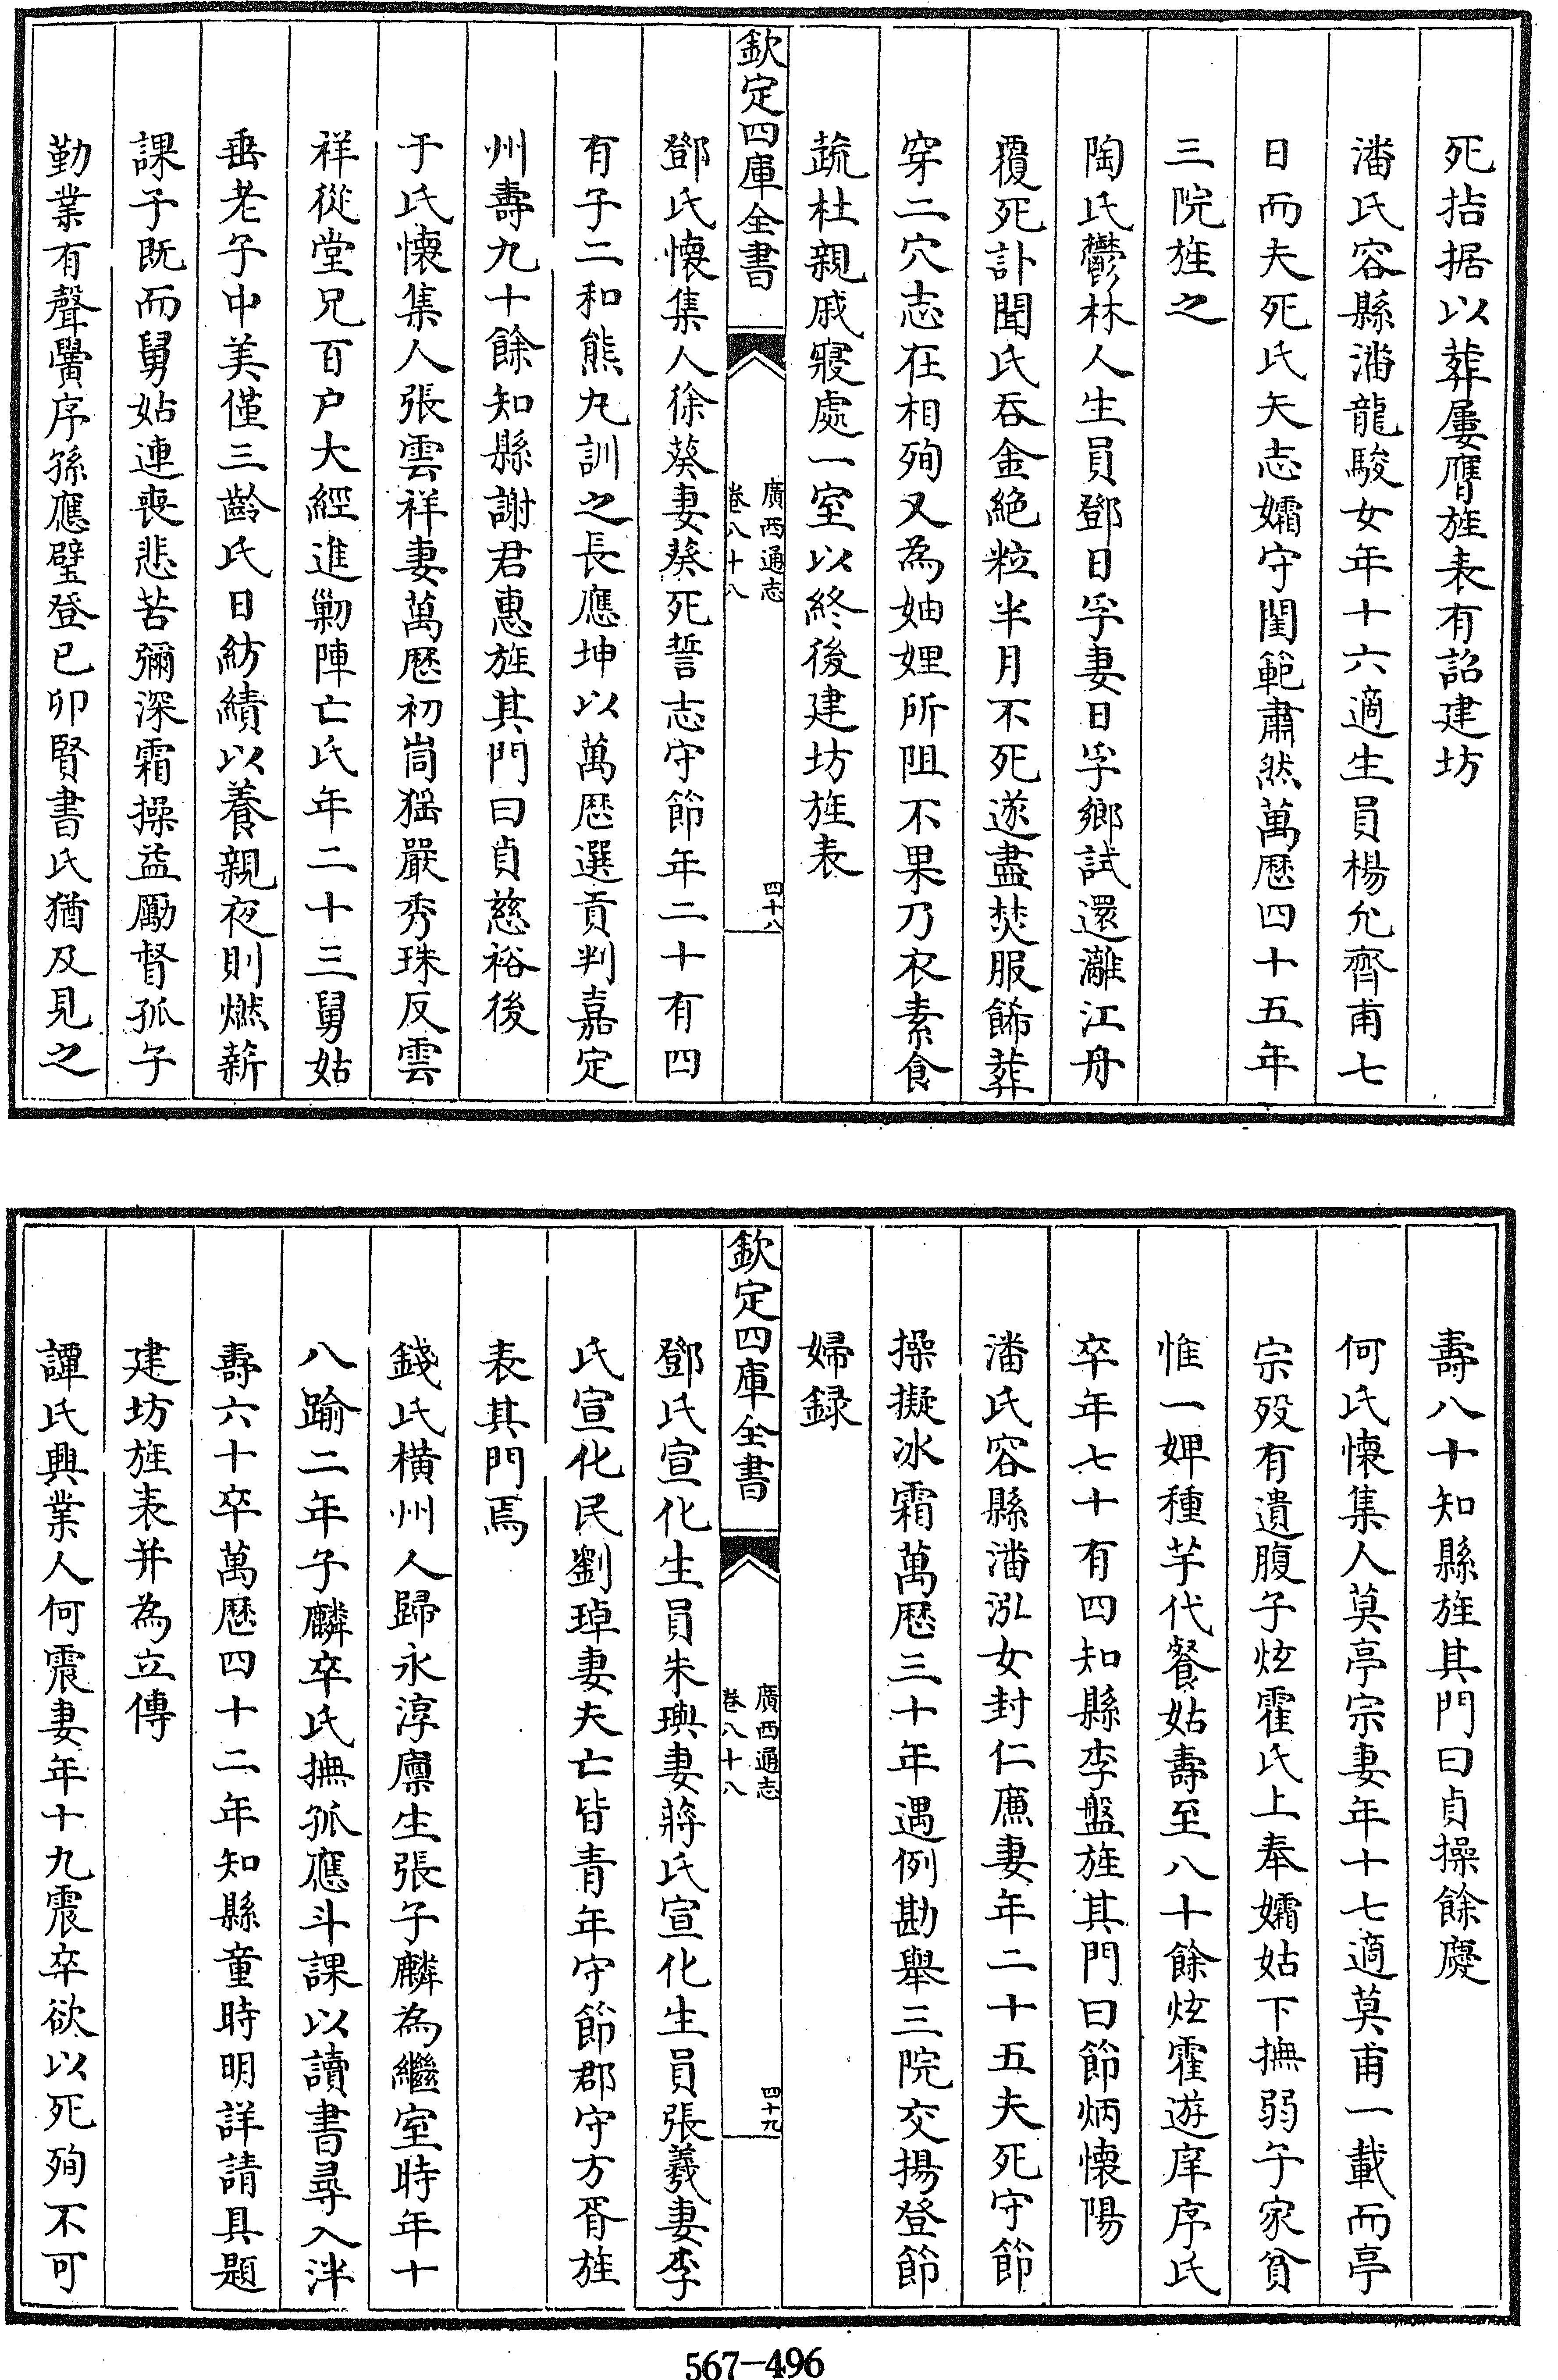 死拮据以葬屢膺旌表有詔建坊
潘氏容縣潘龍駿女年十六適生員楊允齊甫七
日而夫死氏矢志孀守閨範肅然萬厯四十五年
三院旌之
陶氏鬱林人生員鄧日孚妻日孚鄉試還灕江舟
覆死訃聞氏吞金絶粒半月不死遂盡焚服飾葬
穿二穴志在相殉又為妯娌所阻不果乃衣素食
蔬杜親戚寢處一室以終後建坊旌表
欽定四庫全書
廣西通志
卷八十八
四十八
鄧氏懐集人徐葵妻葵死誓志守節年二十有四
有子二和熊丸訓之長應坤以萬厯選貢判嘉定
州壽九十餘知縣謝君惠旌其門曰貞慈裕後
于氏懐集人張雲祥妻萬厯初峝猺嚴秀珠反雲
祥從堂兄百户大經進勦陣亡氏年二十三舅姑
垂老子中美僅三齡氏日紡績以養親夜則燃薪
課子既而舅姑連喪悲苦彌深霜操益勵督孤子
勤業有聲黌序孫應璧登已卯賢書氏猶及見之
壽八十知縣旌其門曰貞操餘慶
何氏懐集人莫亭宗妻年十七適莫甫一載而亭
宗殁有遺腹子炫霍氏上奉孀姑下撫弱子家貧
惟一婢種芋代餐姑壽至八十餘炫霍遊庠序氏
卒年七十有四知縣李盤旌其門曰節炳懐陽
潘氏容縣潘泓女封仁㢘妻年二十五夫死守節
操擬冰霜萬厯三十年遇例勘舉三院交揚登節
婦録
欽定四庫全書
廣西通志
卷八十八
四十九
鄧氏宣化生員朱璵妻蔣氏宣化生員張羲妻李
氏宣化民劉琸妻夫亡皆青年守節郡守方胥旌
表其門焉
錢氏橫州人歸永淳廪生張子麟為繼室時年十
八踰二年子麟卒氏撫孤應斗課以讀書尋入泮
壽六十卒萬厯四十二年知縣童時明詳請具題
建坊旌表并為立傳
譚氏興業人何震妻年十九震卒欲以死殉不可
567-496